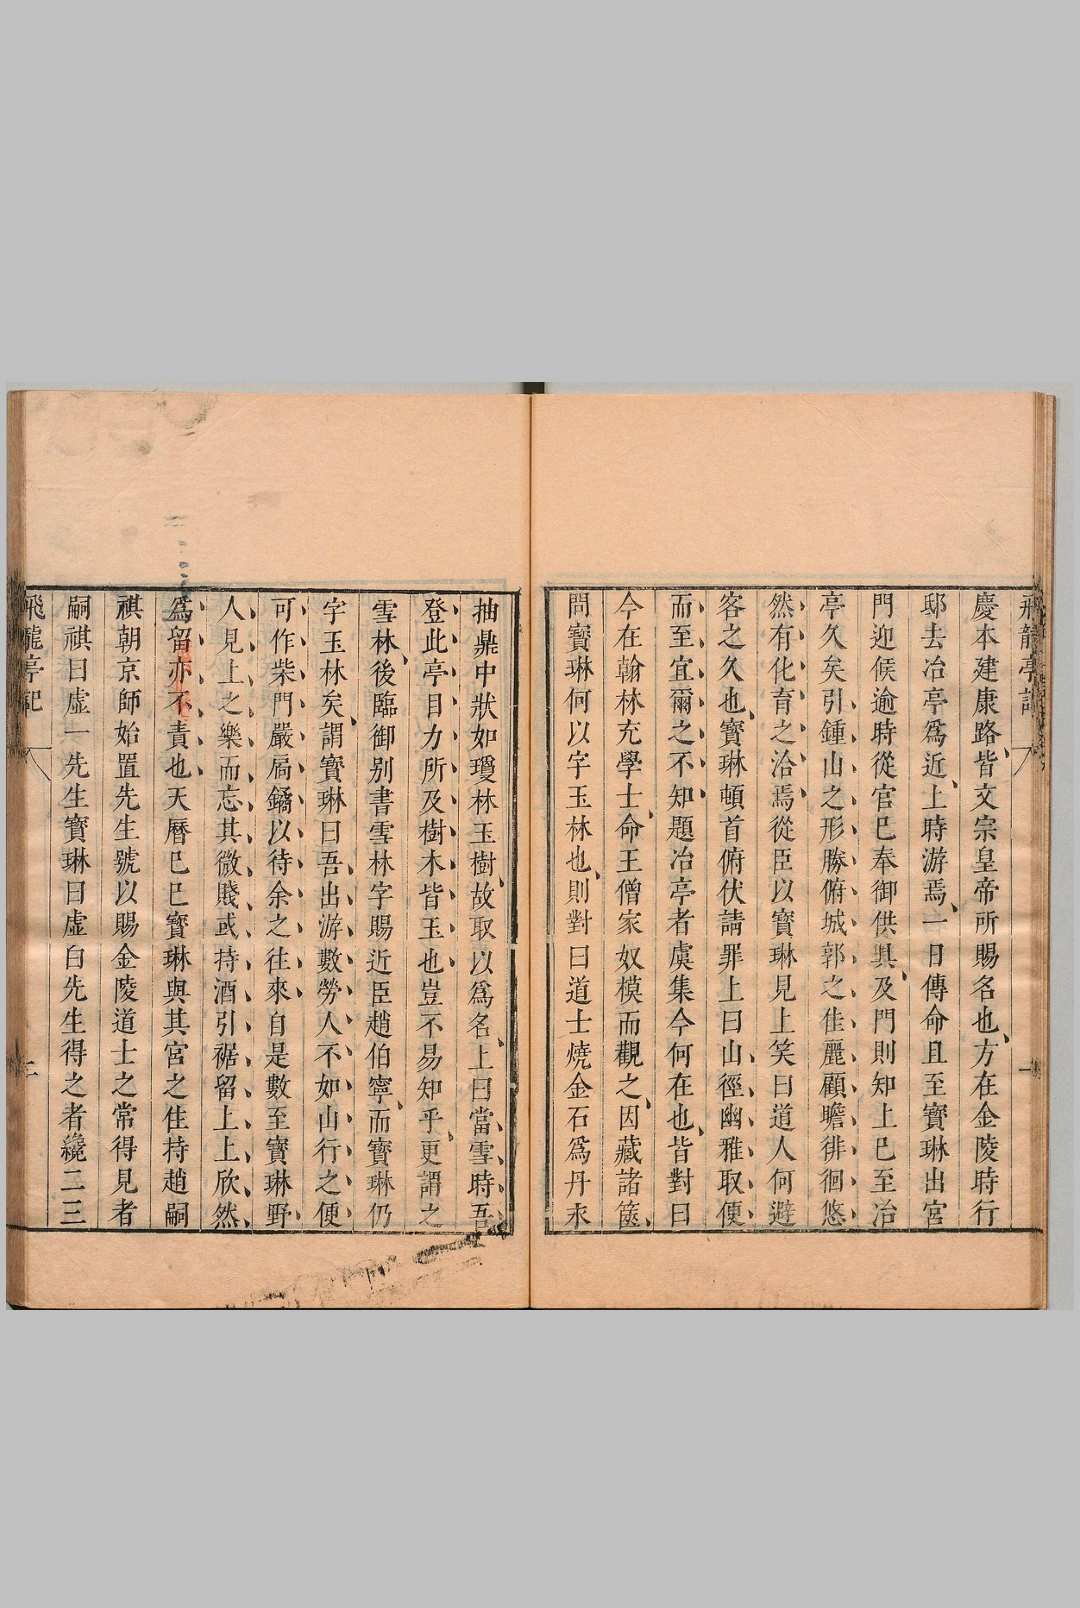 飛龍亭記
一
慶本建康路皆文宗皇帝所賜名也方在金陵時行
邸去冶亭爲近上時游焉一日傳命且至寶琳出宮
門迎候逾時從官已奉御供具及門則知上已至冶
亭久矣引鍾山之形勝俯城郭之佳麗顧瞻徘徊悠
然有化育之洽焉從臣以寶琳見上笑曰道人何避
客之久也寶琳頓首俯伏請罪上曰山徑幽雅取便
而至宜爾之不知題冶亭者虞集今何在也皆對曰
今在翰林充學士命王僧家奴模而觀之因藏諸篋
問寶琳何以字玉林也則對曰道士燒金石爲丹汞
抽鼎中狀如瓊林玉樹故取以爲名上曰當雪時吾
登此亭目力所及樹木皆玉也豈不易知乎更謂之
雪林後臨御别書雪林字賜近臣趙伯寧而寶琳仍
字玉林矣謂寶琳曰吾出游數勞人不如山行之便
可作柴門嚴扃鐍以待余之往來自是數至寶琳野
人見上之樂而忘其微賤或持酒引裾留上上欣然
爲留亦不責也天曆己巳寶琳與其宮之住持趙嗣
祺朝京師始置先生號以賜金陵道士之常得見者
嗣祺曰虛一先生寶琳曰虛白先生得之者纔二三
飛龍亭記
二